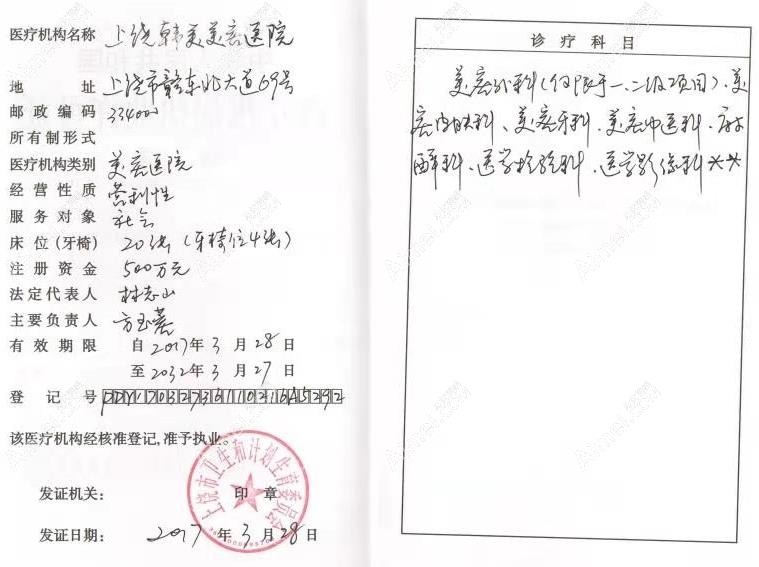 医疗机构名称 上饶韩美美容医院
地址 上饶市赣东北大道69号
邮政编码 334000
所有制形式
医疗机构类别 美容医院
经营性质 营利性
服务对象 社会
床位(牙椅) 20张(牙椅位4张)
注册资金 500万元
法定代表人 林志山
主要负责人
有效期限 自2017年3月28日
至2032年3月27日
登记号
该医疗机构经核准登记,准予执业。
上饶市卫生和计划生育委员会
发证机关: 印章
发证日期: 2017年3月28日
诊疗科目
美容外科(仅限于一、二级项目)、美
容皮肤科、美容牙科、美容中医科、麻
醉科、医学检验科、医学影像科**